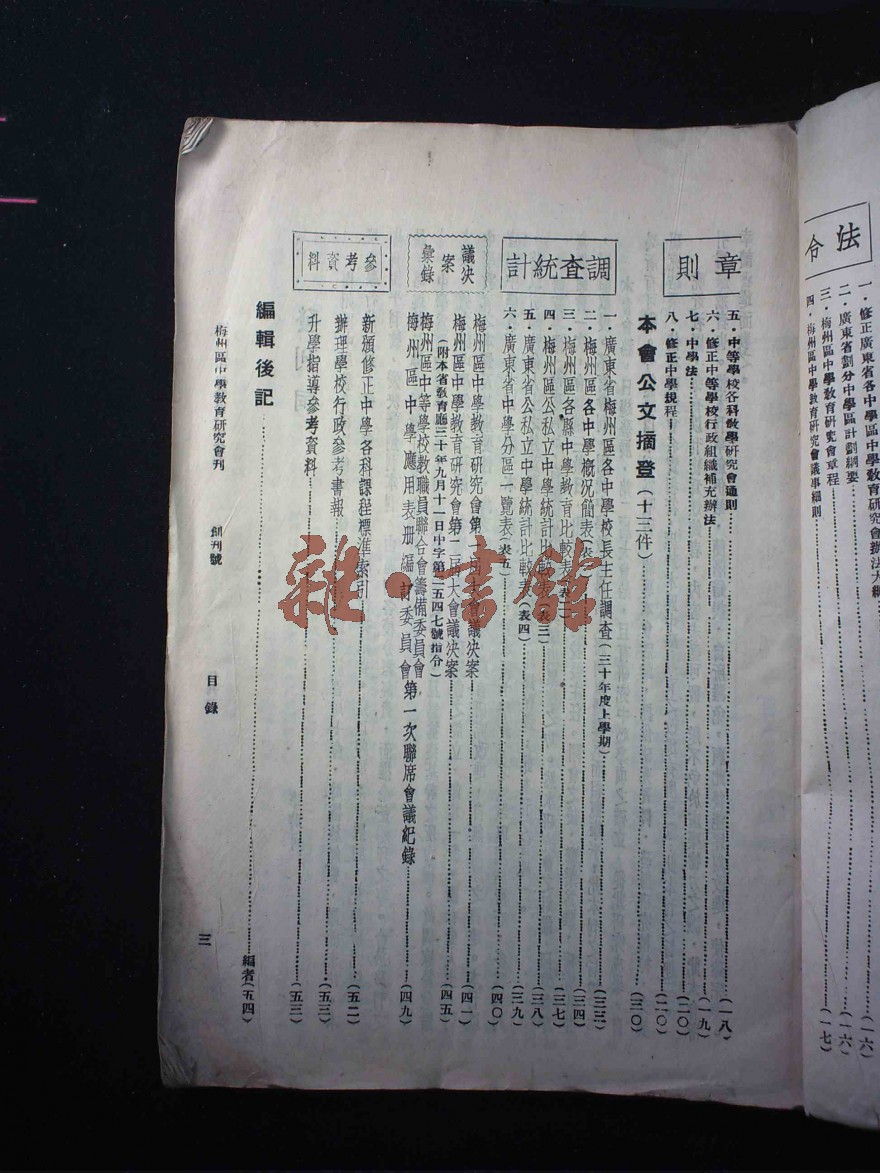 法令
一．修正廣東省各中學區中學教育研究會辦法大綱
二．廣東省劃分中學區計劃綱要……(一六)
三．梅州區中學教育研究會章程……(一六)
四．梅州區中學教育研究會議事細則……(一七)
章則
五．中等學校各科教學研究會通則……(一八)
六．修正中等學校行政組織補充辦法……(一九)
七．中學法……(二〇)
八．修正中學規程……(二〇)
本會公文摘登(十三件)……(三〇)
調查統計
一．廣東省梅州區各中學校長主任調查(三十年度上學期)……(三三)
二．梅州區各中學概況簡表(表一)……(三四)
三．梅州區各縣中學教育比較表(表二)……(三七)
四．梅州區公私立中學統計比較表(表三)……(三八)
五．廣東省公私立中學統計比較表(表四)……(三九)
六．廣東省中學分區一覽表(表五)……(四〇)
議決案彙錄
梅州區中學教育研究會第一屆大會議決案……(四一)
梅州區中學教育研究會第二屆大會議決案……(四五)
(附本省教育廳三十年九月十一日中字第二五四七號指令)
梅州區中等學校教職員聯合會籌備委員會
梅州區中學應用表冊編訂委員會第一次聯席會議紀錄……(四九)
參考資料
新頒修正中學各科課程標準索引……(五二)
辦理學校行政參考書報……(五三)
升學指導參考資料……(五三)
編輯後記……編者(五四)
梅州區中學教育研究會刊 創刊號 目錄 三
雜·書館